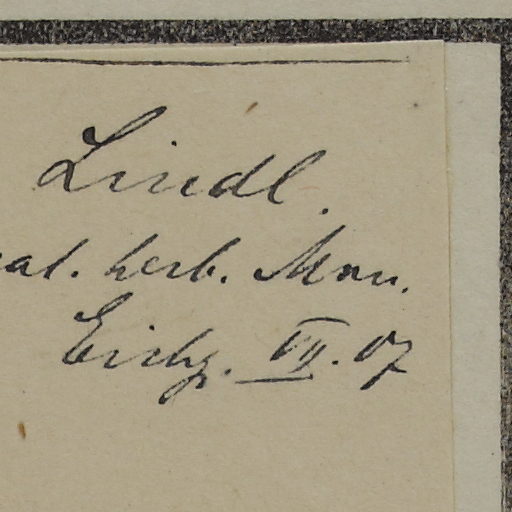 Lindl.
al. herb. Mon.
Eichg. VII. 07